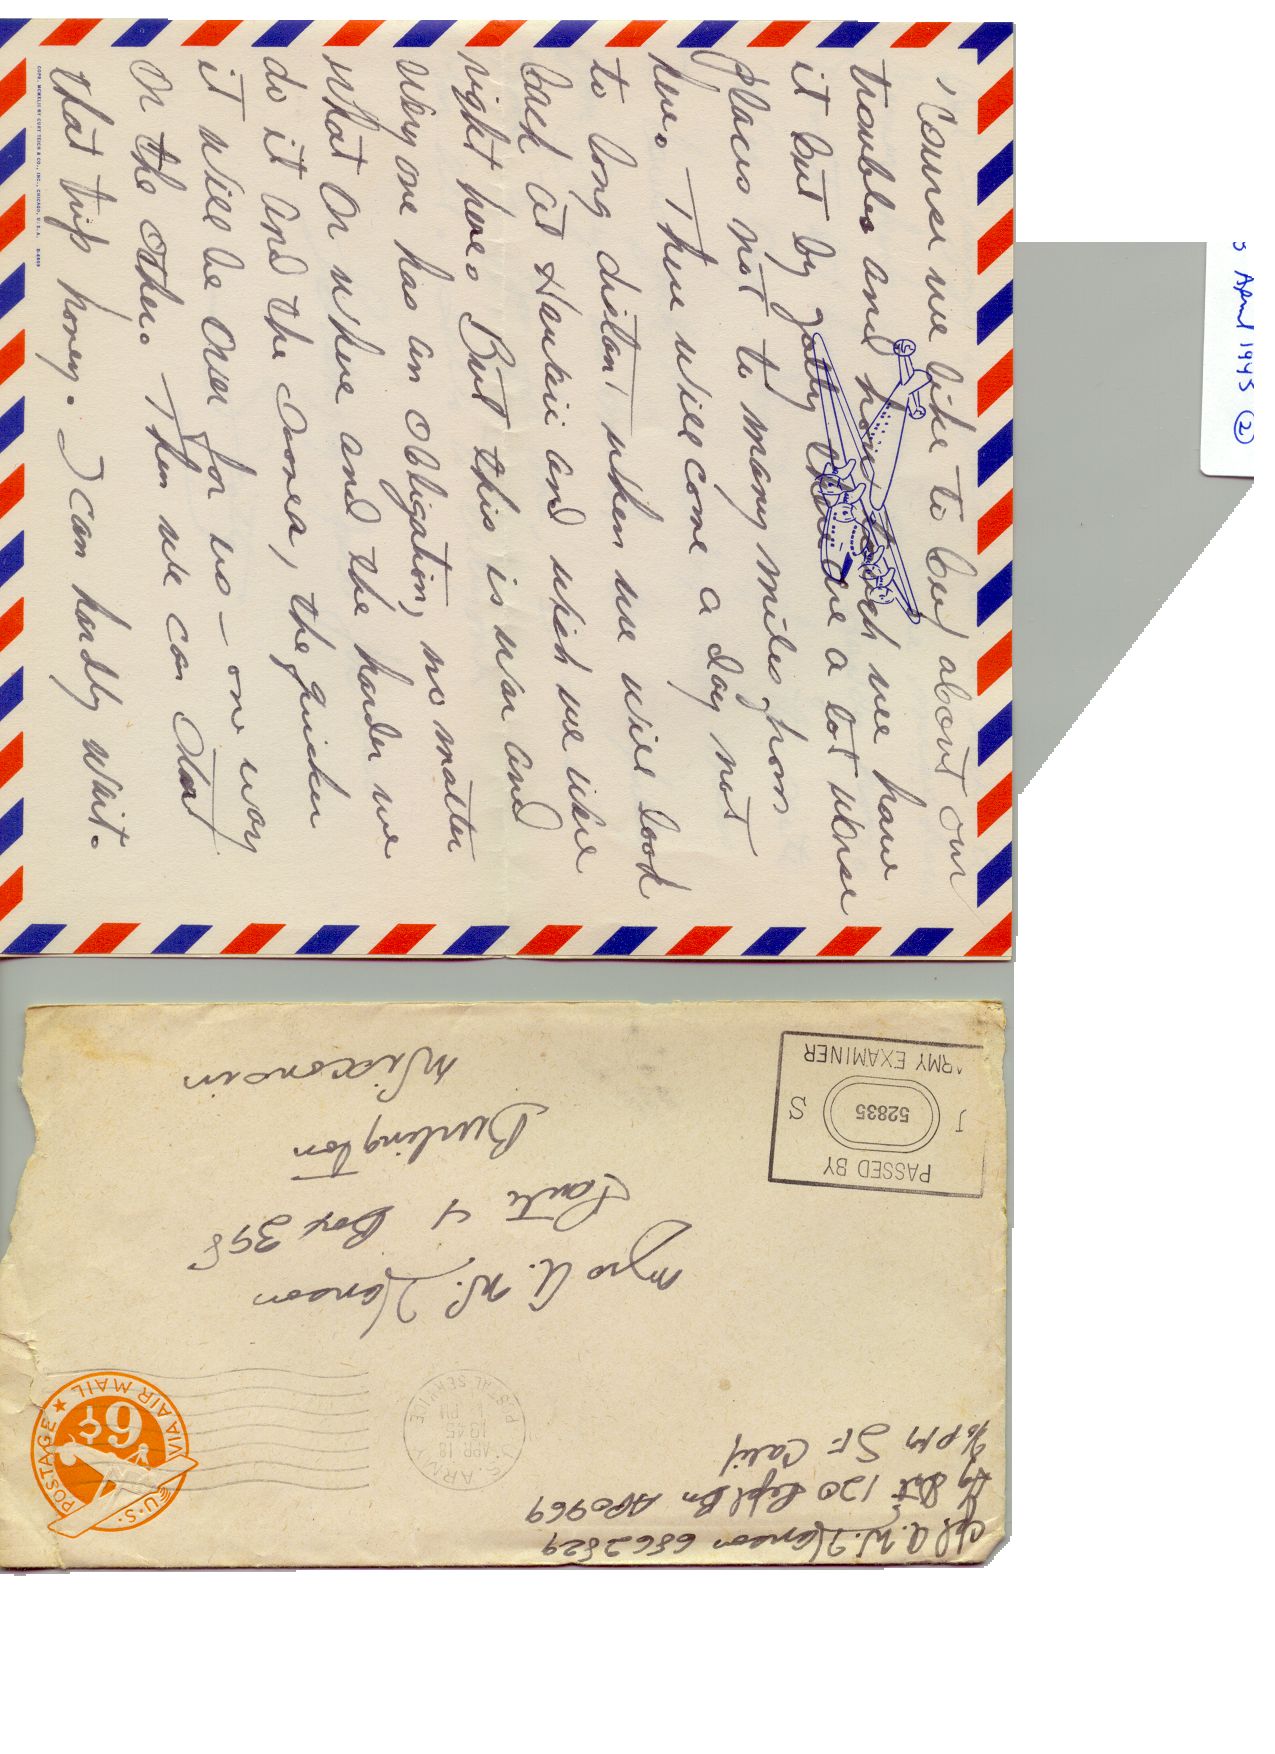 'Course we like to beef about our
troubles and hardships which we have
it but by golly there are a lot worse
places not to many miles from
here. There will come a day not
to long distant when we will look
back at Hawaii and wish we were
right here. But this is war and
every one has an obligation, no matter
what or where and the harder we
do it and the sooner, the quicker
it will be over for us - one way
or the other. Then we can start
that trip honey. I can hardly wait.
COPR. MCMXLIII BY CURT TEICH & CO., INC., CHICAGO, U.S.A.
April 1945 ②
Cpl A. W. Hanson 6862829
Hq Det 120 Repl Bn APO 969
% PM SF Calif
U.S. ARMY
APR 18
1945
PM
POSTAL SERVICE
U.S. POSTAGE
6¢
VIA AIR MAIL
Mrs A. W. Hanson
Route 4 Box 398
Burlington
Wisconsin
PASSED BY
52835
S
ARMY EXAMINER